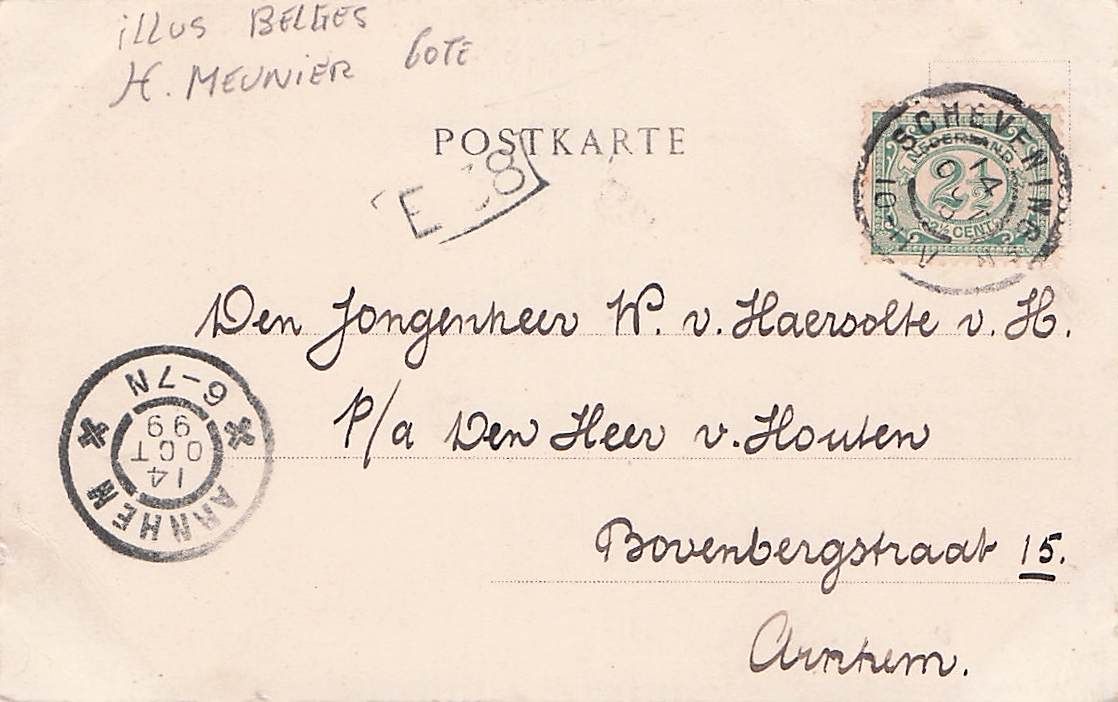 illus BELGES
H. MEUNIER COTE
POSTKARTE
SCHEVENINGEN
14
10-11V
NEDERLAND
2½
2½ CENT
E 38
Den Jongenheer W. v. Haersolte v. H.
P/a Den Heer v. Houten
Bovenbergstraat 15.
Arnhem.
6-7N
14
OCT
99
ARNHEM